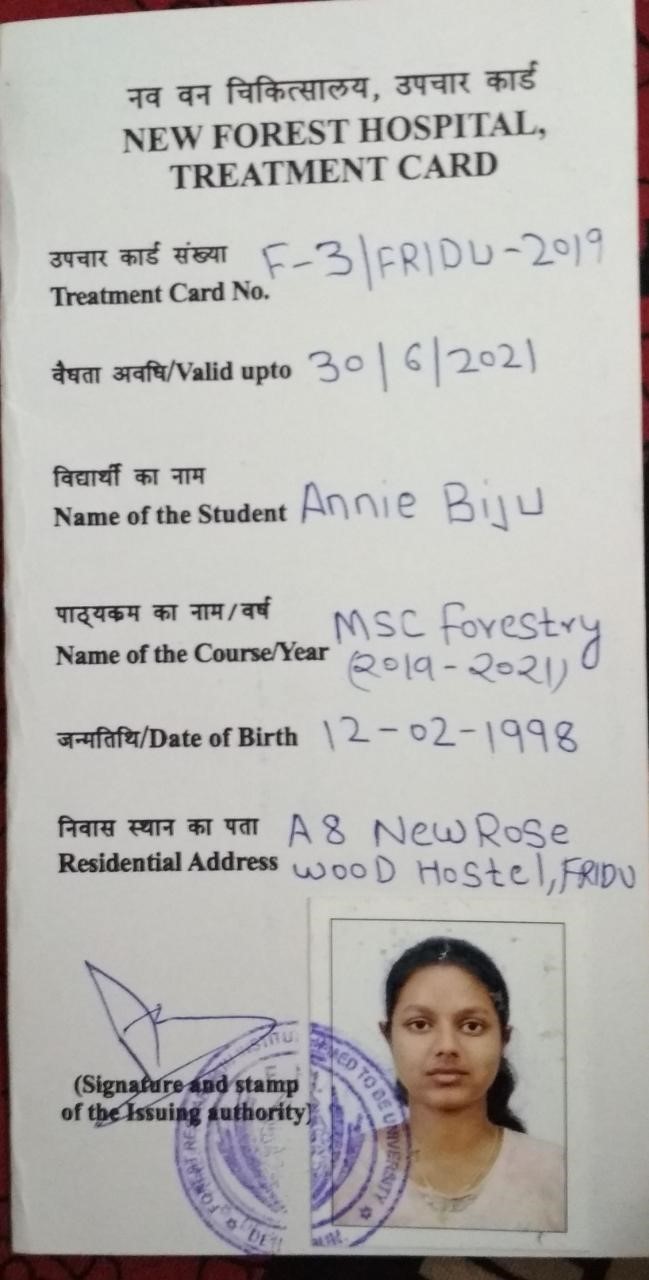 नव वन चिकित्सालय, उपचार कार्ड
NEW FOREST HOSPITAL,
TREATMENT CARD
उपचार कार्ड संख्या
Treatment Card No. F-3/FRIDU-2019
वैधता अवधि/Valid upto 30/6/2021
विद्यार्थी का नाम
Name of the Student Annie Biju
पाठ्यकम का नाम/वर्ष
Name of the Course/Year MSC Forestry
(2019-2021)
जन्मतिथि/Date of Birth 12-02-1998
निवास स्थान का पता A8 New Rose
Residential Address wooD Hostel, FRIDU
(Signature and stamp
of the Issuing authority)
FOREST RE
DEEMED TO BE UNIVERSITY